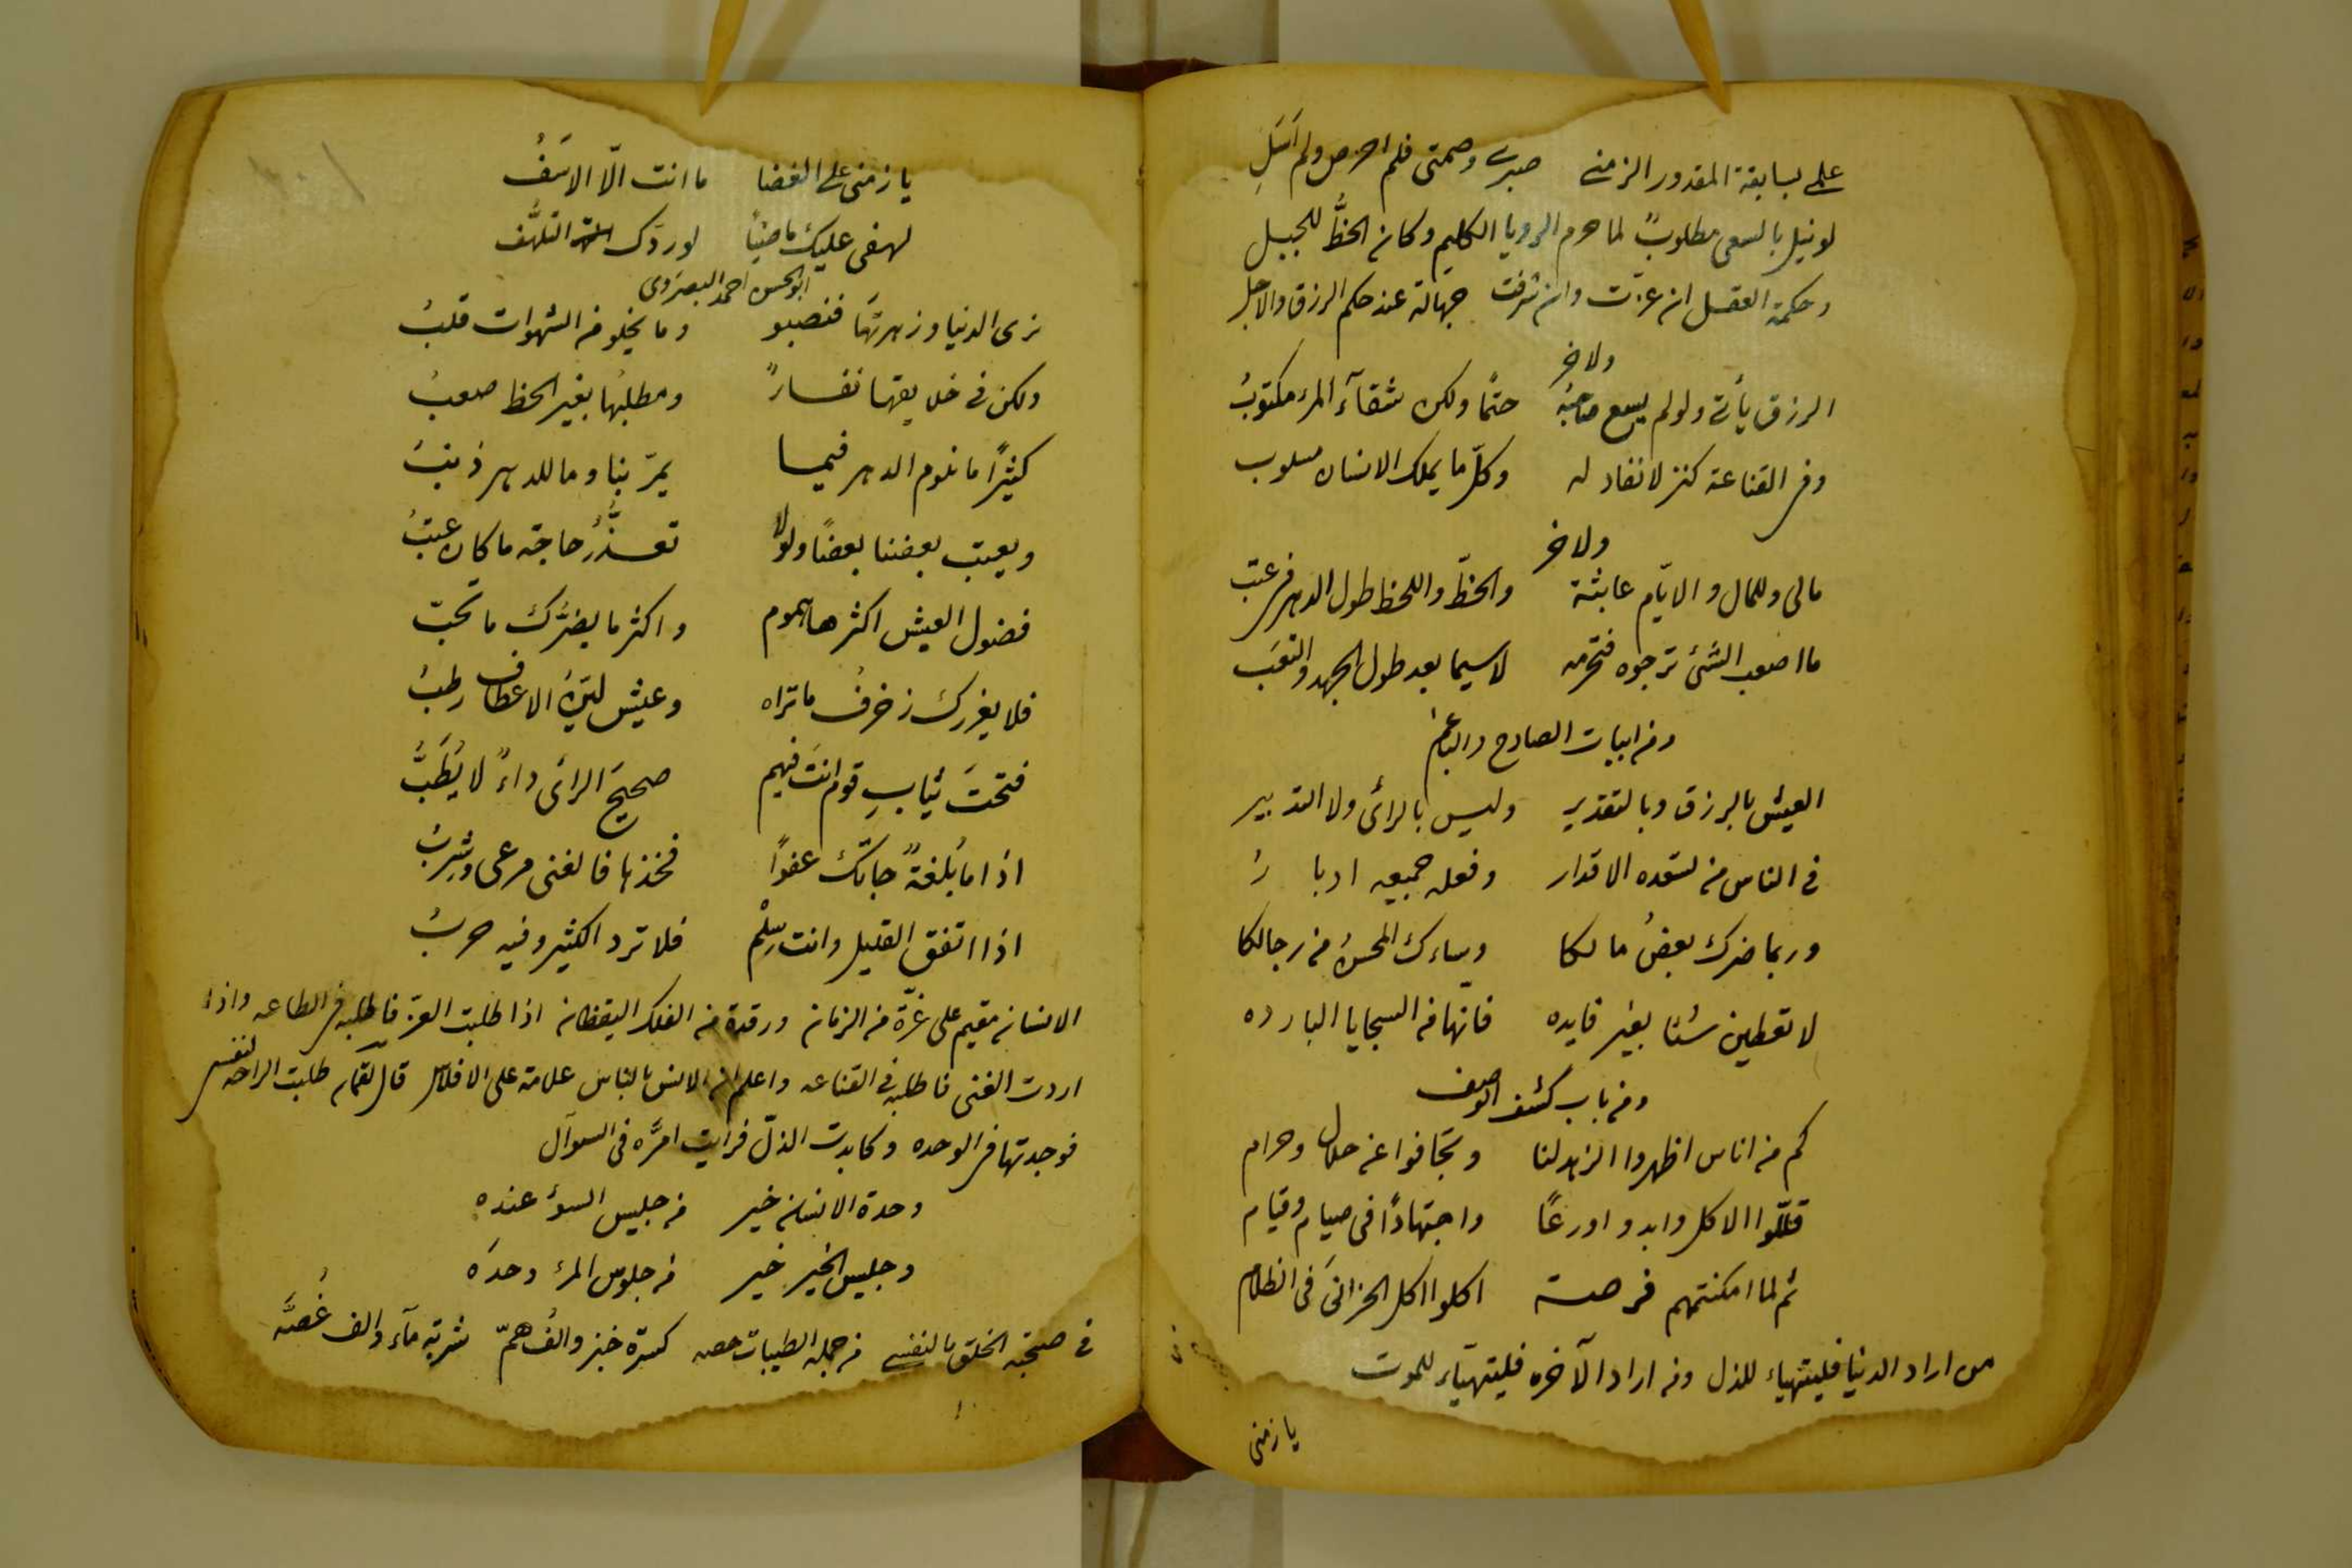 علمي بسابقة المقدور الزمني صبري وصمتي فلم احرص ولم اَسَلِ
لو نيل بالسعي مطلوبٌ لما حرم الرويا الكليم وكان الحظُّ للجبل
وحكمة العقل ان عزّت وان شرفت جهالة عند حكم الرزق والاجل
ولاخر
الرزق يأتي ولو لم يسع صاحبُهُ حتمًا ولكن شقآء المرء مكتوبُ
وفي القناعة كنز لا نفاد له وكلّ ما يملك الانسان مسلوب
ولاخر
مالي وللمال والايّام عابثة والحظّ واللحظ طول الدهر في عتب
ما اصعب الشئ ترجوه فتحرمه لاسيما بعد طول الجهد والتعَب
ومن ابيات الصادح والباغم
العيش بالرزق وبالتقدير وليس بالرائ ولا التدبير
في الناس من تسعده الاقدار وفعله جميعه ادبارُ
وربما ضرك بعضُ مالكا وساءك المحسنُ من رجالكا
لا تعطين شئا بغير فايده فانّها من السجايا البارده
ومن باب كشف الوصف
كم من اناس اظهروا الزهد لنا وتجافوا عن حلال وحرام
قلّلوا الاكل وابدوا ورعًا واجتهادًا في صيام وقيام
ثم لما امكنتهم فرصة اكلوا اكل الحزانىَ في الظلام
من اراد الدنيا فليتهياء للذل ومن اراد الآخره فليتهيّاء للموت
يا زمني
يا زمني على الغضا ما انت الّا الاسَفُ
لهفي عليك ماضيًا لو ردّك التلهُّف
ابو الحسن احمد البصروى
نرى الدنيا وزهرتَها فنصبو وما يخلو من الشهوات قلبُ
ولكن في خلايقها نفارٌ ومطلبُها بغير الحظ صعبُ
كثيرًا ما نلوم الدهر فيما يمرّ بنا وما للدهر ذنبُ
ويعتب بعضنا بعضًا ولولا تعذُّرُ حاجة ما كان عتبُ
فضول العيش اكثرها هموم واكثر ما يضرّك ما تحبّ
فلا يغررك زخرفُ ما تراه وعيش ليّنُ الاعطاف رطبُ
فتحتَ ثيابِ قوم انتَ فيهم صحيحُ الرائ داءٌ لا يُطَبُّ
اذا ما بُلغةٌ جاتك عفوًا فخذها فالغنى مرعى وشِربُ
اذا اتفق القليل وانت سِلْم فلا ترد الكثير وفيه حربُ
الانسان مقيم على غرّة من الزمان ورقدة من الفلك اليقظان اذا طلبت العزّ فاطلبه في الطاعه واذا
اردت الغنى فاطلبه في القناعه واعلم ان الانس بالناس علامة على الافلاس قال لقمان طلبت الراحه لنفسى
فوجدتها في الوحده وكابدت الذلّ فرايت امرَّه في السوآل
وحدة الانسان خير من جليس السوٴ عنده
وجليس الخير خير من جلوس المرء وحدَه
في صحبة الخلق يا لنفسي من جملة الطيبات حصه كسرة خبز والفُ همّ شربة مآء والف غُصَّه